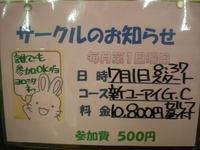 サークルのお知らせ
毎月第1日曜日
誰でも
参加OKョ
日時 7月1日 8:37 スタート
コース 新ユーアイG.C
料金 10,800円 セルフ
参加費 500円